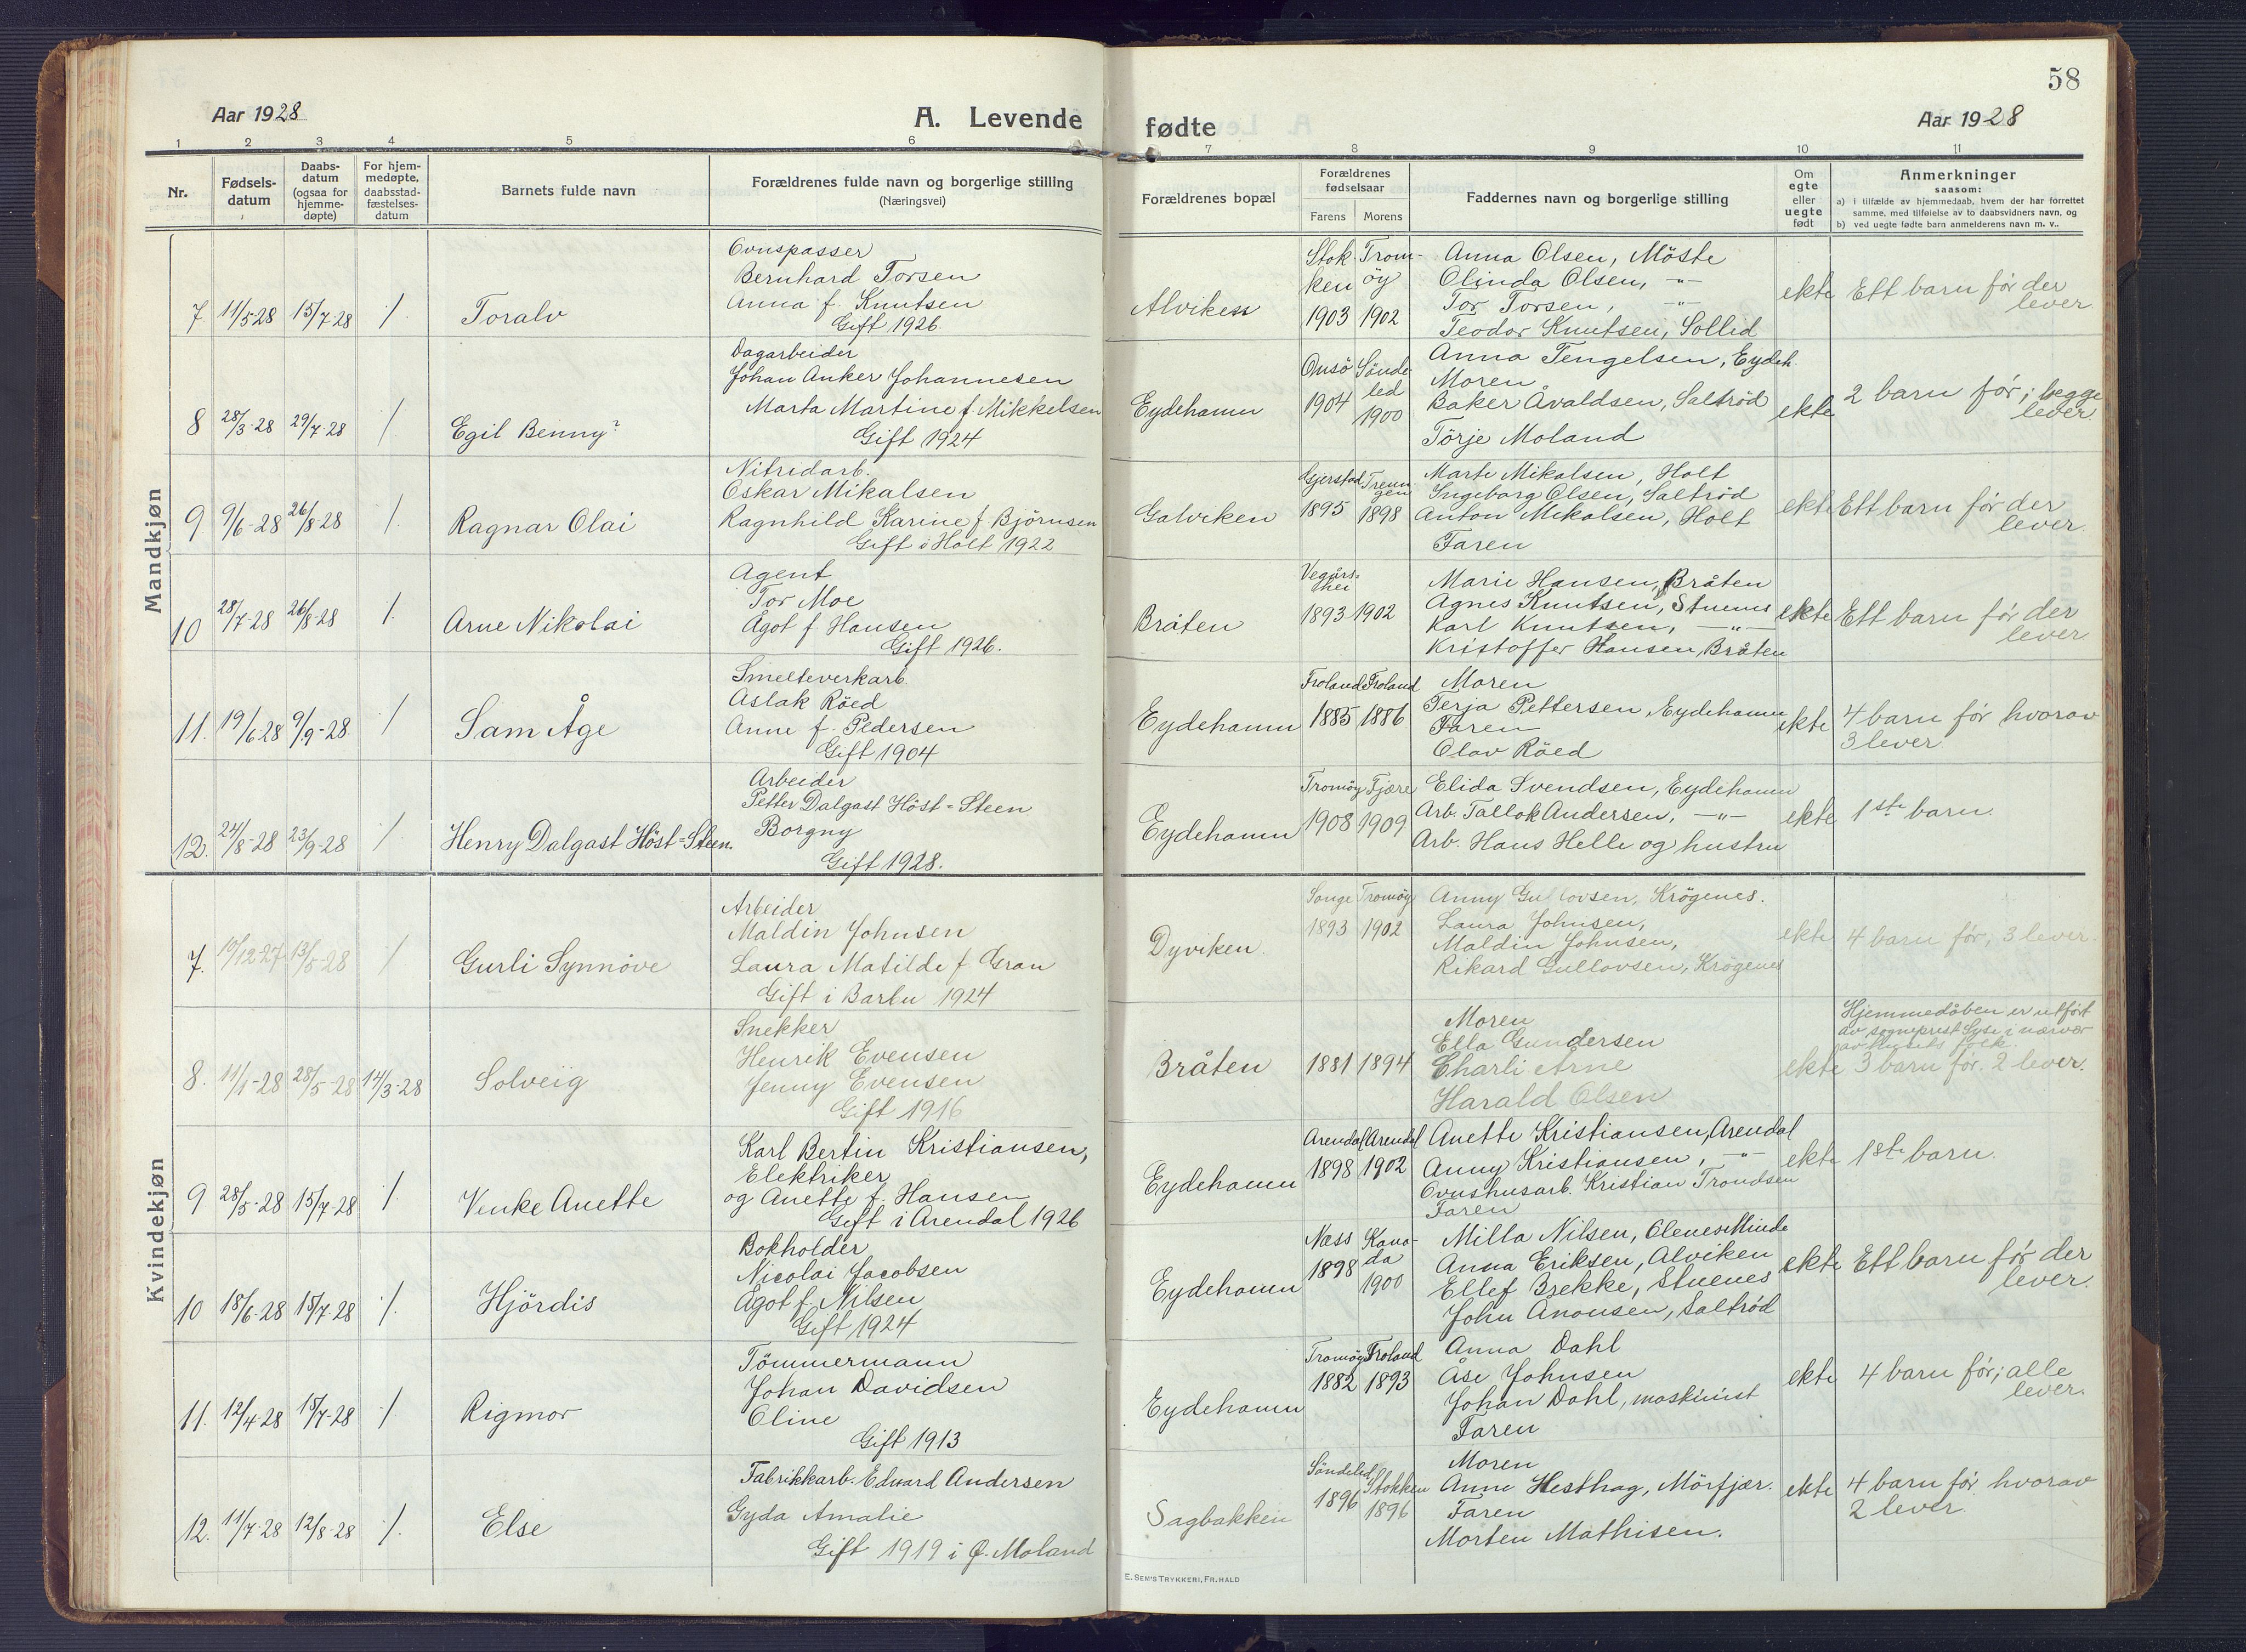 58
Aar 1928
A. Levende fødte
Aar 1928
1 2 3 4 5 6 7 8 9 10 11
Nr.
Fødsels-
datum
Daabs-
datum
(ogsaa for
hjemme-
døpte)
For hjem-
medøpte,
daabsstad-
fæstelses-
datum
Barnets fulde navn
Forældrenes fulde navn og borgerlige stilling
(Næringsvei)
Forældrenes bopæl
Forældrenes
fødselsaar
Farens Morens
Faddernes navn og borgerlige stilling
Om
egte
eller
uegte
født
Anmerkninger
saasom:
a) i tilfælde av hjemmedaab, hvem der har forrettet
samme, med tilføielse av to daabsvidners navn, og
b) ved uegte fødte barn anmelderens navn m. v..
Mandkjøn
7 11/5-28 15/7-28 /. Toralv
Ovnspasser
Bernhard Torsen
Anna f. Knutsen
Gift 1926.
Alviken
Stokken 1903
Tromöy 1902
Anna Olsen, Möste
Olinda Olsen, -"-
Tor Torsen, -"-
Teodor Knutsen, Sollid
ekte
Ett barn før der
lever.
8 28/3-28 29/7-28 / Egil Benny?
Dagarbeider
Johan Anker Johannesen
Marta Martine f. Mikkelsen
Gift 1924
Eydehamn
Onsö 1904
Söndeled 1900
Anna Tengelsen, Eydeh.
Moren
Baker Åvaldsen, Saltröd
Törje Moland
ekte
2 barn før; begge
lever.
9 9/6-28 26/8-28 /. Ragnar Olai
Nitridarb.
Oskar Mikalsen
Ragnhild Karine f. Björnsen
Gift i Holt 1922
Galviken
Gjerstad 1895
Treungen 1898
Marte Mikalsen, Holt
Ingeborg Olsen, Saltröd
Anton Mikalsen, Holt
Faren
ekte
Ett barn før der
lever.
10 28/7-28 26/8-28 /. Arne Nikolai
Agent
Tor Moe
Ågot f. Hansen
Gift 1926.
Bråten
Vegårs-
hei
1893 1902
Marie Hansen, Bråten
Agnes Knutsen, Stuenes
Karl Knutsen, -"-
Kristoffer Hansen, Bråten
ekte
Ett barn før der
lever
11. 19/6-28 9/9-28 / Sam Åge
Smelteverkarb.
Aslak Röed
Anne f. Pedersen
Gift 1904
Eydehamn
Froland 1885
Froland 1886
Moren
Terja Pettersen, Eydehamn
Faren
Olav Röed
ekte
4 barn før hvorav
3 lever
12. 24/8-28 23/9-28 / Henry Dalgast Höst=Steen.
Arbeider
Petter Dalgast Höst=Steen
Borgny
Gift 1928.
Eydehamn
Tromöy 1908
Fjære 1909
Elida Svendsen, Eydehamn
Arb. Tallok Andersen, -"-
Arb. Hans Helle og hustru
ekte
1ste barn.
Kvindekjøn
7. 10/12-27 13/5-28 / Gurli Synnöve
Arbeider
Maldin Johnsen
Laura Matilde f. Gran
Gift i Barbu 1924
Dyviken
Songe 1893
Tromöy 1902
Anny Gullovsen, Krögenes.
Laura Johnsen,
Maldin Johnsen,
Rikard Gullovsen, Krögenes
ekte
4 barn før, 3 lever.
8. 11/1-28 28/5-28 14/3-28 Solveig
Snekker
Henrik Evensen
Jenny Evensen
Gift 1916
Bråten
1881 1894
Moren
Ella Gundersen
Charli Arne
Harald Olsen
ekte
Hjemmedåben er utført
av sogneprest Syse i nærvær
av husets folk.
3 barn før. 2 lever.
9 28/5-28 15/7-28 /. Venke Anette
Karl Bertin Kristiansen,
Elektriker
og Anette f. Hansen
Gift i Arendal 1926
Eydehamn
Arendal 1898
Arendal 1902
Anette Kristiansen, Arendal
Anny Kristiansen, -"-
Ovnshusarb. Kristian Trondsen
Faren
ekte
1ste barn.
10 18/6-28 15/7-28 /. Hjördis
Bokholder
Nicolai Jacobsen
Ågot f. Nilsen
Gift 1924
Eydehamn
Næss 1898
Kanada 1900
Milla Nilsen, Olenes Minde
Anna Eriksen, Alviken
Ellef Brekke, Stuenes
John Anonsen, Saltröd
ekte
Ett barn før der
lever.
11. 12/4-28 15/7-28 / Rigmor
Tömmermann
Johan Davidsen
Oline
Gift 1913
Eydehamn
Tromöy 1882
Froland 1893
Anna Dahl
Åse Johnsen
Johan Dahl, maskinist
Faren
ekte
4 barn før; alle
lever.
12. 11/7-28 12/8-28 /. Else
Fabrikkarb. Edward Andersen
Gyda Amalie
Gift 1919 i Ø. Moland
Sagbakken
Söndeled 1896
Stokken 1896
Moren
Anne Hesthag, Mörfjær.
Faren
Morten Mathisen.
ekte
4 barn før hvorav
2 lever
E. SEM'S TRYKKERI, FR.HALD